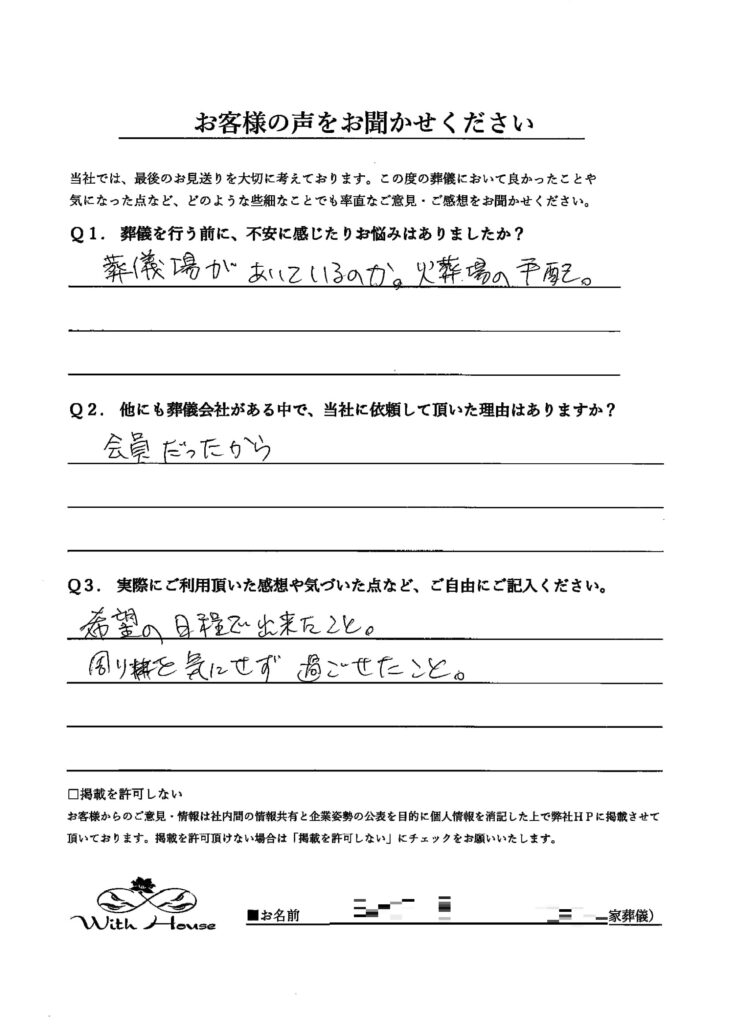 お客様の声をお聞かせください
当社では、最後のお見送りを大切に考えております。この度の葬儀において良かったことや
気になった点など、どのような些細なことでも率直なご意見・ご感想をお聞かせください。
Q1. 葬儀を行う前に、不安に感じたりお悩みはありましたか？
葬儀場があいているのか。火葬場の手配。
Q2. 他にも葬儀会社がある中で、当社に依頼して頂いた理由はありますか？
会員だったから
Q3. 実際にご利用頂いた感想や気づいた点など、ご自由にご記入ください。
希望の日程で出来たこと。
周りを気にせず過ごせたこと。
□掲載を許可しない
お客様からのご意見・情報は社内間の情報共有と企業姿勢の公表を目的に個人情報を消記した上で弊社HPに掲載させて
頂いております。掲載を許可頂けない場合は「掲載を許可しない」にチェックをお願いいたします。
With House
■お名前 家葬儀）